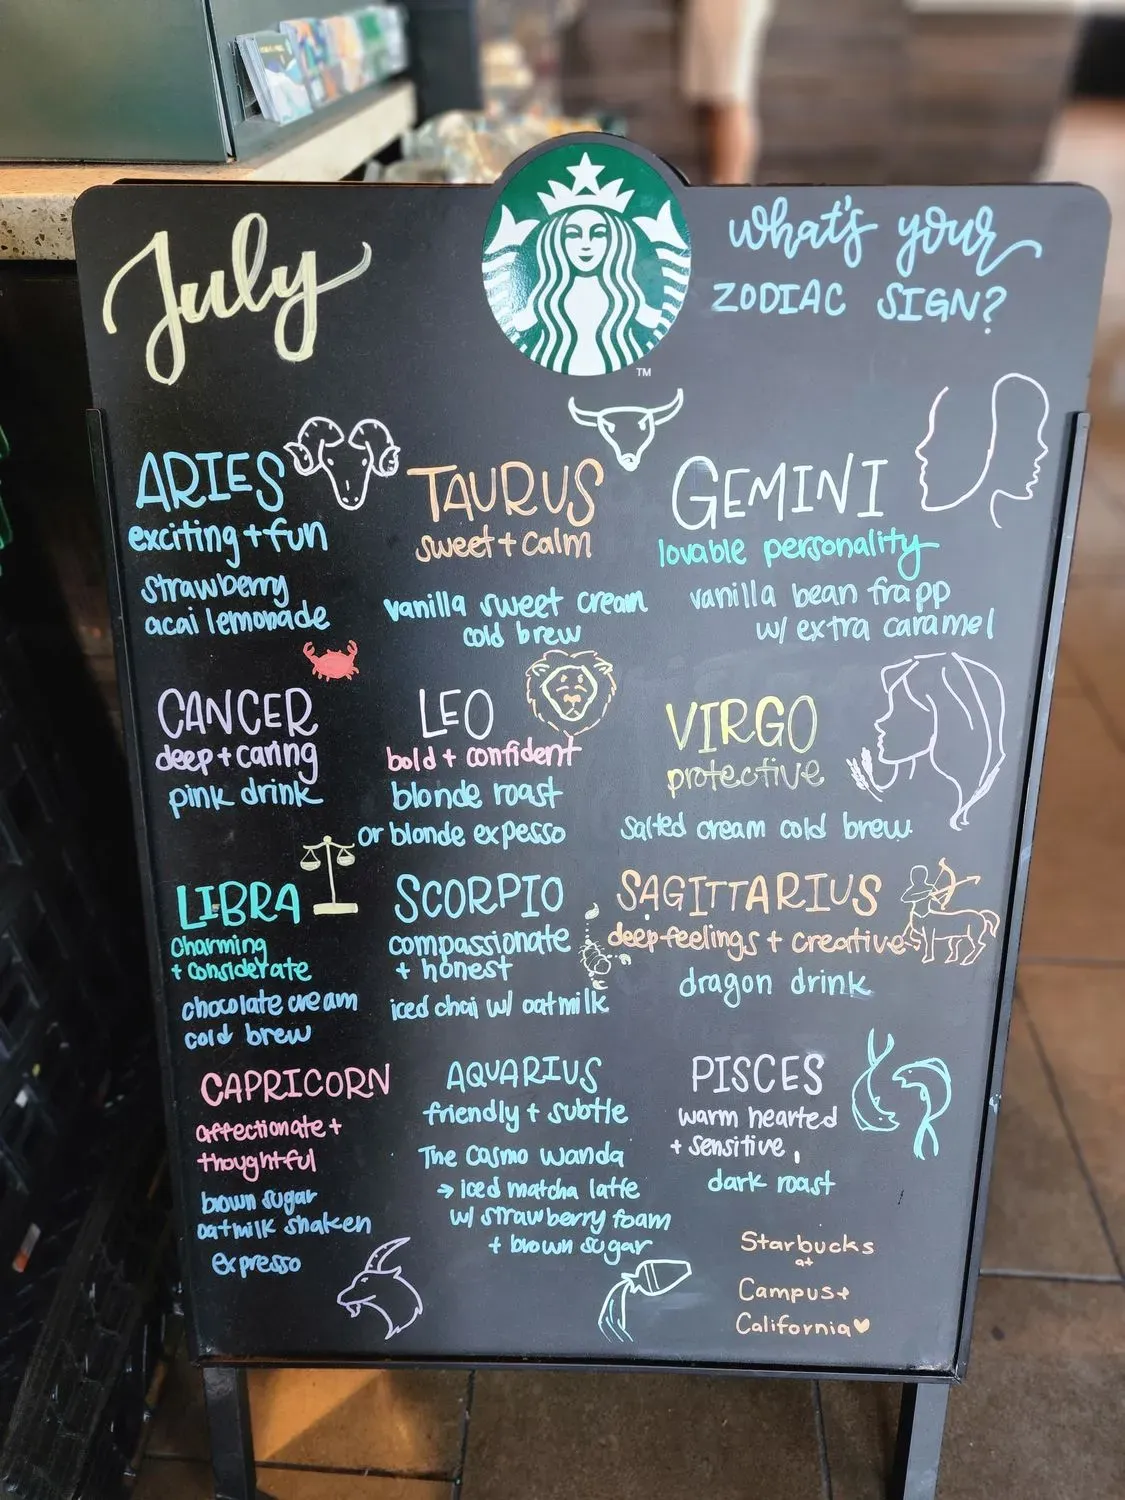 July
what's your
ZODIAC SIGN?
TM
ARIES
exciting + fun
strawberry
acai lemonade
TAURUS
sweet + calm
vanilla sweet cream
cold brew
GEMINI
lovable personality
vanilla bean frapp
w/ extra caramel
CANCER
deep + caring
pink drink
LEO
bold + confident
blonde roast
or blonde expesso
VIRGO
protective
salted cream cold brew
LIBRA
charming
+ considerate
chocolate cream
cold brew
SCORPIO
compassionate
+ honest
iced chai w/ oatmilk
SAGITTARIUS
deep feelings + creative
dragon drink
CAPRICORN
affectionate +
thoughtful
brown sugar
oatmilk shaken
expresso
AQUARIUS
friendly + subtle
The Cosmo wanda
→ iced matcha latte
w/ strawberry foam
+ brown sugar
PISCES
warm hearted
+ sensitive,
dark roast
Starbucks
at
Campus+
California♥